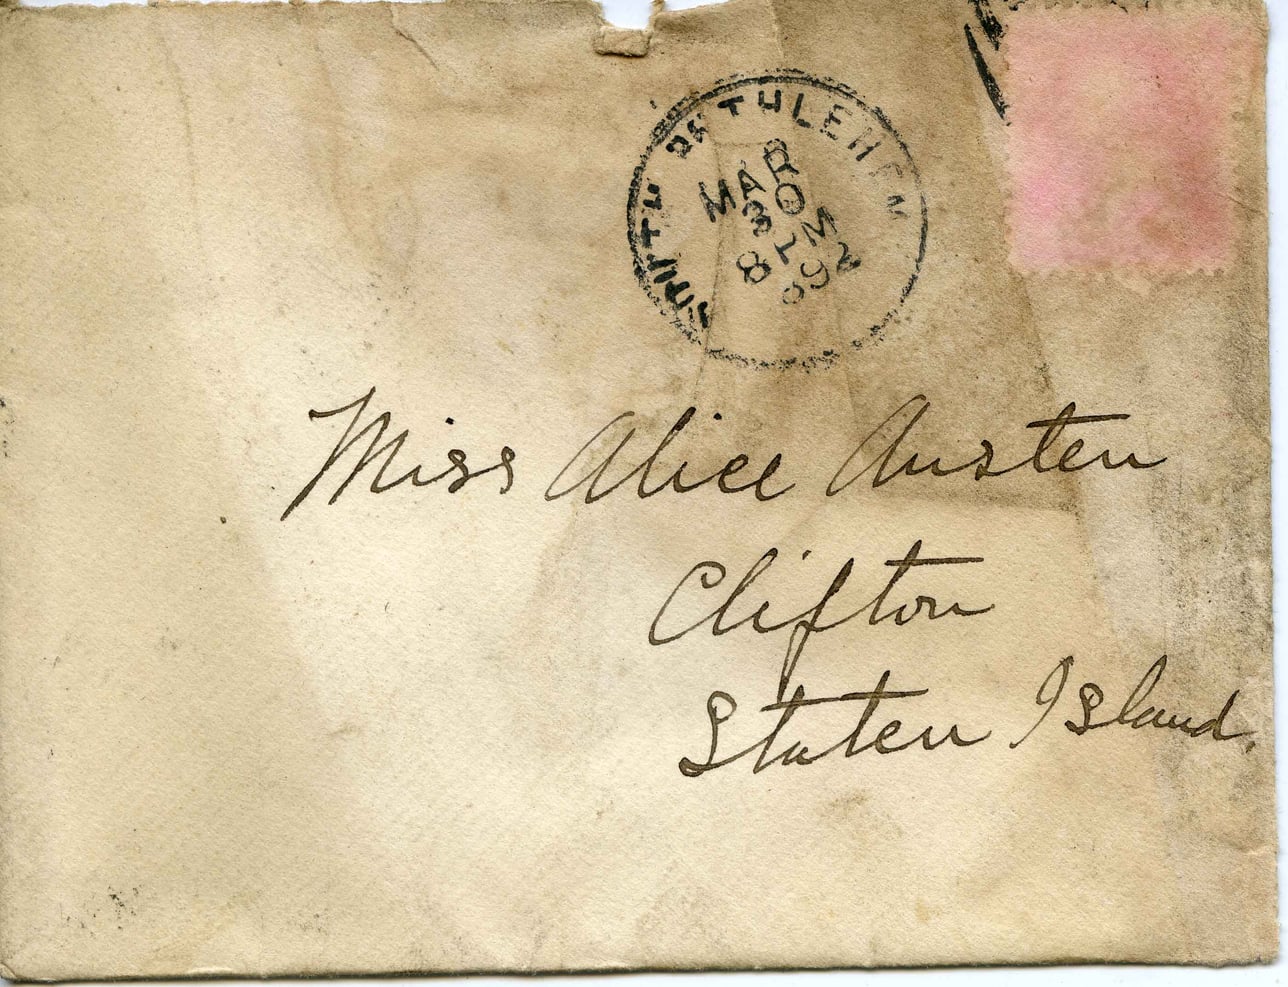 SOUTH BETHLEHEM
MAR
31
8
92
Miss Alice Austen
Clifton
Staten Island.